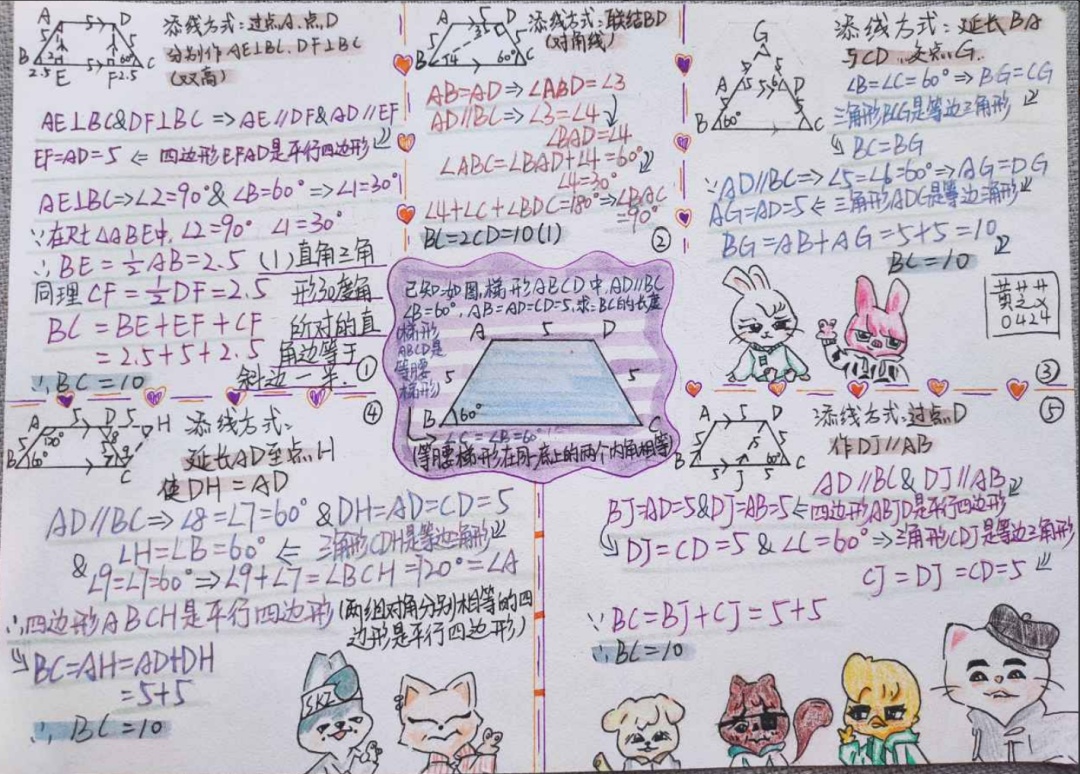 添线方式:过点A、点D
分别作AE⊥BC、DF⊥BC
(双高)
A 5 D
5 5
B 2.5 E 5 F 2.5 C
60°
AE⊥BC&DF⊥BC⇒AE∥DF&AD∥EF
EF=AD=5⇐四边形EFAD是平行四边形
AE⊥BC⇒∠2=90°&∠B=60°⇒∠1=30°
∵在Rt△ABE中,∠2=90° ∠1=30°
∴BE=½AB=2.5 (1)直角三角
同理CF=½DF=2.5 形30度角
BC=BE+EF+CF 所对的直
=2.5+5+2.5 角边等于
∴BC=10 斜边一半. ①
添线方式:联结BD
(对角线)
A 5 D
5 3 5
B 4 60° C
AB=AD⇒∠ABD=∠3
AD∥BC⇒∠3=∠4
∠BAD=∠4
∠ABC=∠BAD+∠4=60°
∠4=30°
∠4+∠C+∠BDC=180°⇒∠BAC
=90°
BC=2CD=10(1) ②
添线方式:延长BA
与CD、交点G.
G
5 5
A 5 5 6 D
5 5
B 60° C
∠B=∠C=60°⇒BG=CG
三角形BCG是等边三角形
BC=BG
∵AD∥BC⇒∠5=∠6=60°⇒AG=DG
AG=AD=5⇐三角形ADG是等边三角形
BG=AB+AG=5+5=10
BC=10
0424
③
已知:如图,梯形ABCD中,AD∥BC
∠B=60°,AB=AD=CD=5,求:BC的长度
梯形
ABCD是
等腰
梯形)
A 5 D
5 5
B 60° C
∠C=∠B=60°
(等腰梯形在同一底上的两个内角相等)
④
A 5 D 5 H
120° 8
5 5
B 60° 7 9
C
添线方式:
延长AD至点H
使DH=AD
AD∥BC⇒∠8=∠7=60°&DH=AD=CD=5
∠H=∠B=60°⇐三角形CDH是等边三角形
&∠9=∠7=60°⇒∠9+∠7=∠BCH=120°=∠A
∴四边形ABCH是平行四边形(两组对角分别相等的四
边形是平行四边形)
BC=AH=AD+DH
=5+5
∴BC=10
SKZ
⑤
A 5 D
5 5 5
B 5 J 5 60° C
添线方式:过点D
作DJ∥AB
AD∥BC&DJ∥AB
BJ=AD=5&DJ=AB=5⇐四边形ABJD是平行四边形
DJ=CD=5&∠C=60°⇒三角形CDJ是等边三角形
CJ=DJ=CD=5
∵BC=BJ+CJ=5+5
∴BC=10